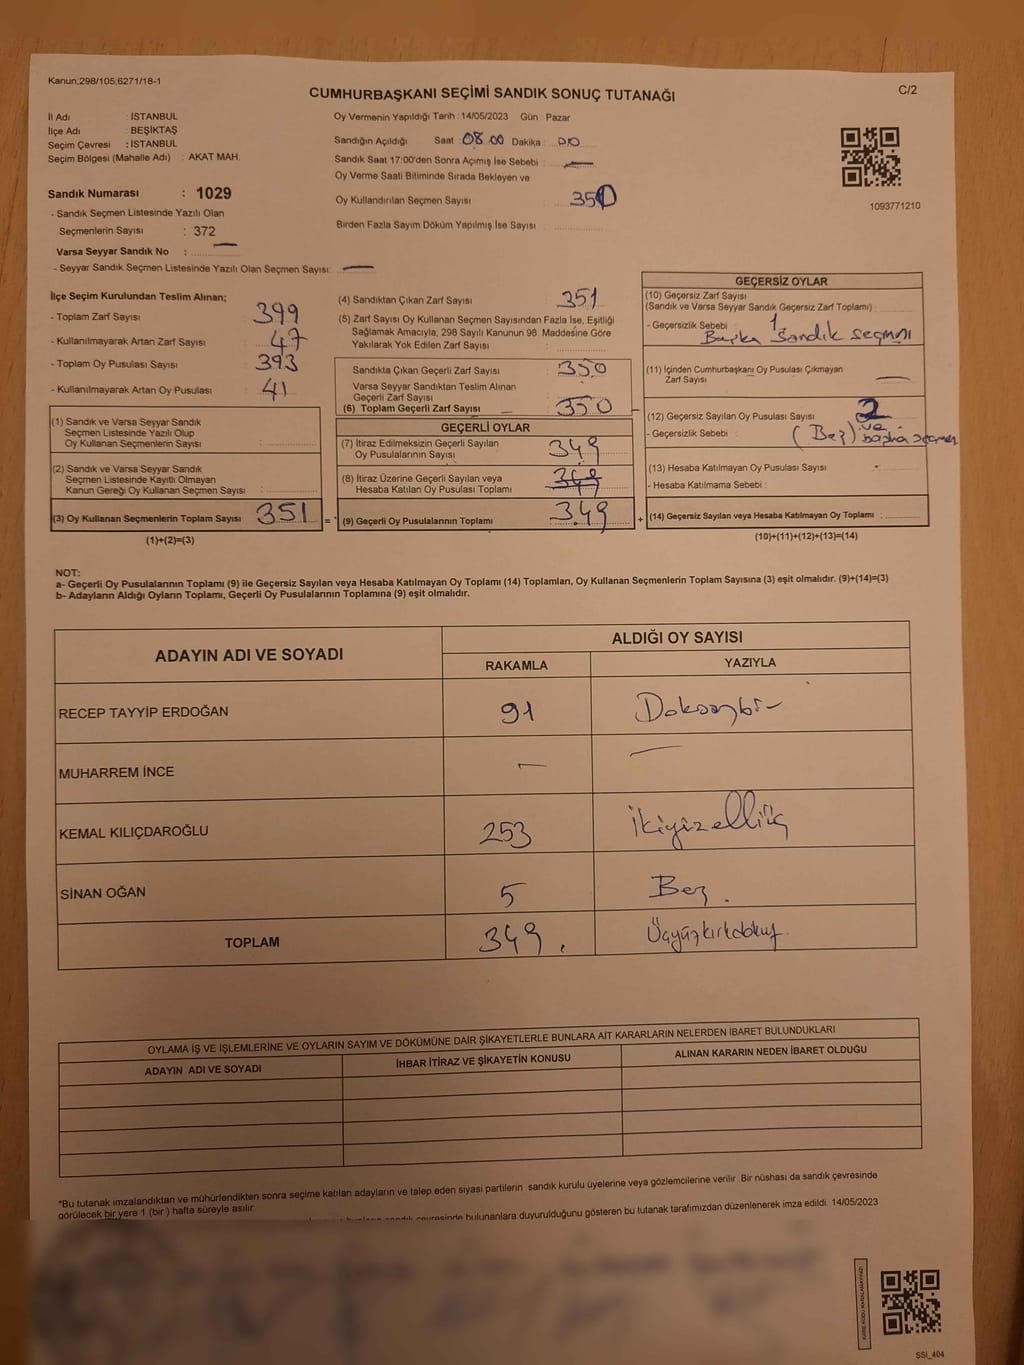 Kanun;298/105;6271/18-1
C/2
CUMHURBAŞKANI SEÇİMİ SANDIK SONUÇ TUTANAĞI
İl Adı : İSTANBUL
İlçe Adı : BEŞİKTAŞ
Seçim Çevresi : İSTANBUL
Seçim Bölgesi (Mahalle Adı) : AKAT MAH.
Sandık Numarası : 1029
- Sandık Seçmen Listesinde Yazılı Olan
Seçmenlerin Sayısı : 372
Varsa Seyyar Sandık No : —
- Seyyar Sandık Seçmen Listesinde Yazılı Olan Seçmen Sayısı: —
Oy Vermenin Yapıldığı Tarih : 14/05/2023 Gün : Pazar
Sandığın Açıldığı Saat : 08.00 Dakika : 00
Sandık Saat 17:00'den Sonra Açımış İse Sebebi : —
Oy Verme Saati Bitiminde Sırada Bekleyen ve
Oy Kullandırılan Seçmen Sayısı 350
Birden Fazla Sayım Döküm Yapılmış İse Sayısı
1093771210
İlçe Seçim Kurulundan Teslim Alınan;
- Toplam Zarf Sayısı 399
- Kullanılmayarak Artan Zarf Sayısı 47
- Toplam Oy Pusulası Sayısı 393
- Kullanılmayarak Artan Oy Pusulası 41
(1) Sandık ve Varsa Seyyar Sandık
Seçmen Listesinde Yazılı Olup
Oy Kullanan Seçmenlerin Sayısı :
(2) Sandık ve Varsa Seyyar Sandık
Seçmen Listesinde Kayıtlı Olmayan
Kanun Gereği Oy Kullanan Seçmen Sayısı
(3) Oy Kullanan Seçmenlerin Toplam Sayısı 351
(1)+(2)=(3)
(4) Sandıktan Çıkan Zarf Sayısı 351
(5) Zarf Sayısı Oy Kullanan Seçmen Sayısından Fazla İse, Eşitliği
Sağlamak Amacıyla; 298 Sayılı Kanunun 98. Maddesine Göre
Yakılarak Yok Edilen Zarf Sayısı
Sandıkta Çıkan Geçerli Zarf Sayısı 350
Varsa Seyyar Sandıktan Teslim Alınan
Geçerli Zarf Sayısı
(6) Toplam Geçerli Zarf Sayısı 350
GEÇERLİ OYLAR
(7) İtiraz Edilmeksizin Geçerli Sayılan
Oy Pusulalarının Sayısı 349
(8) İtiraz Üzerine Geçerli Sayılan veya
Hesaba Katılan Oy Pusulası Toplamı 349
= (9) Geçerli Oy Pusulalarının Toplamı 349 +
GEÇERSİZ OYLAR
(10) Geçersiz Zarf Sayısı
(Sandık ve Varsa Seyyar Sandık Geçersiz Zarf Toplamı) :
- Geçersizlik Sebebi : 1
Başka Sandık seçmeni
(11) İçinden Cumhurbaşkanı Oy Pusulası Çıkmayan
Zarf Sayısı —
(12) Geçersiz Sayılan Oy Pusulası Sayısı 2
- Geçersizlik Sebebi : (Boş) ve başka seçmen
(13) Hesaba Katılmayan Oy Pusulası Sayısı
- Hesaba Katılmama Sebebi :
(14) Geçersiz Sayılan veya Hesaba Katılmayan Oy Toplamı :
(10)+(11)+(12)+(13)=(14)
NOT:
a- Geçerli Oy Pusulalarının Toplamı (9) ile Geçersiz Sayılan veya Hesaba Katılmayan Oy Toplamı (14) Toplamları, Oy Kullanan Seçmenlerin Toplam Sayısına (3) eşit olmalıdır. (9)+(14)=(3)
b- Adayların Aldığı Oyların Toplamı, Geçerli Oy Pusulalarının Toplamına (9) eşit olmalıdır.
ADAYIN ADI VE SOYADI
ALDIĞI OY SAYISI
RAKAMLA YAZIYLA
RECEP TAYYİP ERDOĞAN 91 Doksanbir
MUHARREM İNCE — —
KEMAL KILIÇDAROĞLU 253 ikiyüzelliüç
SİNAN OĞAN 5 Beş.
TOPLAM 349. Üçyüzkırkdokuz
OYLAMA İŞ VE İŞLEMLERİNE VE OYLARIN SAYIM VE DÖKÜMÜNE DAİR ŞİKAYETLERLE BUNLARA AİT KARARLARIN NELERDEN İBARET BULUNDUKLARI
ADAYIN ADI VE SOYADI İHBAR İTİRAZ VE ŞİKAYETİN KONUSU ALINAN KARARIN NEDEN İBARET OLDUĞU
*Bu tutanak imzalandıktan ve mühürlendikten sonra seçime katılan adayların ve talep eden siyasi partilerin sandık kurulu üyelerine veya gözlemcilerine verilir. Bir nüshası da sandık çevresinde
görülecek bir yere 1 (bir) hafta süreyle asılır.
sandık çevresinde bulunanlara duyurulduğunu gösteren bu tutanak tarafımızdan düzenlenerek imza edildi. 14/05/2023
SSI_404